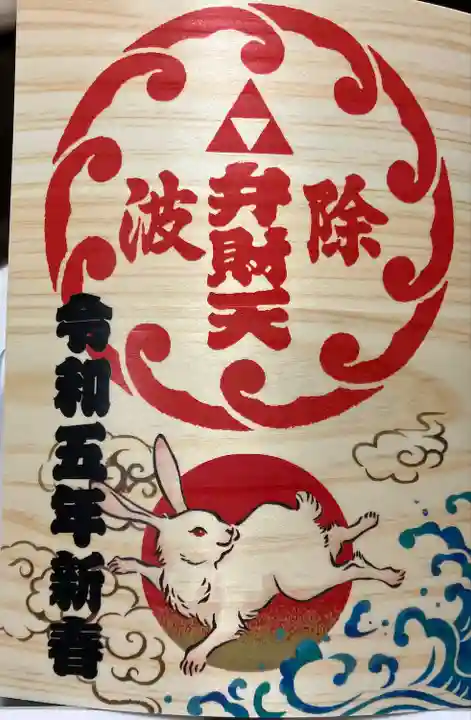 除波
弁財天
令和五年新春